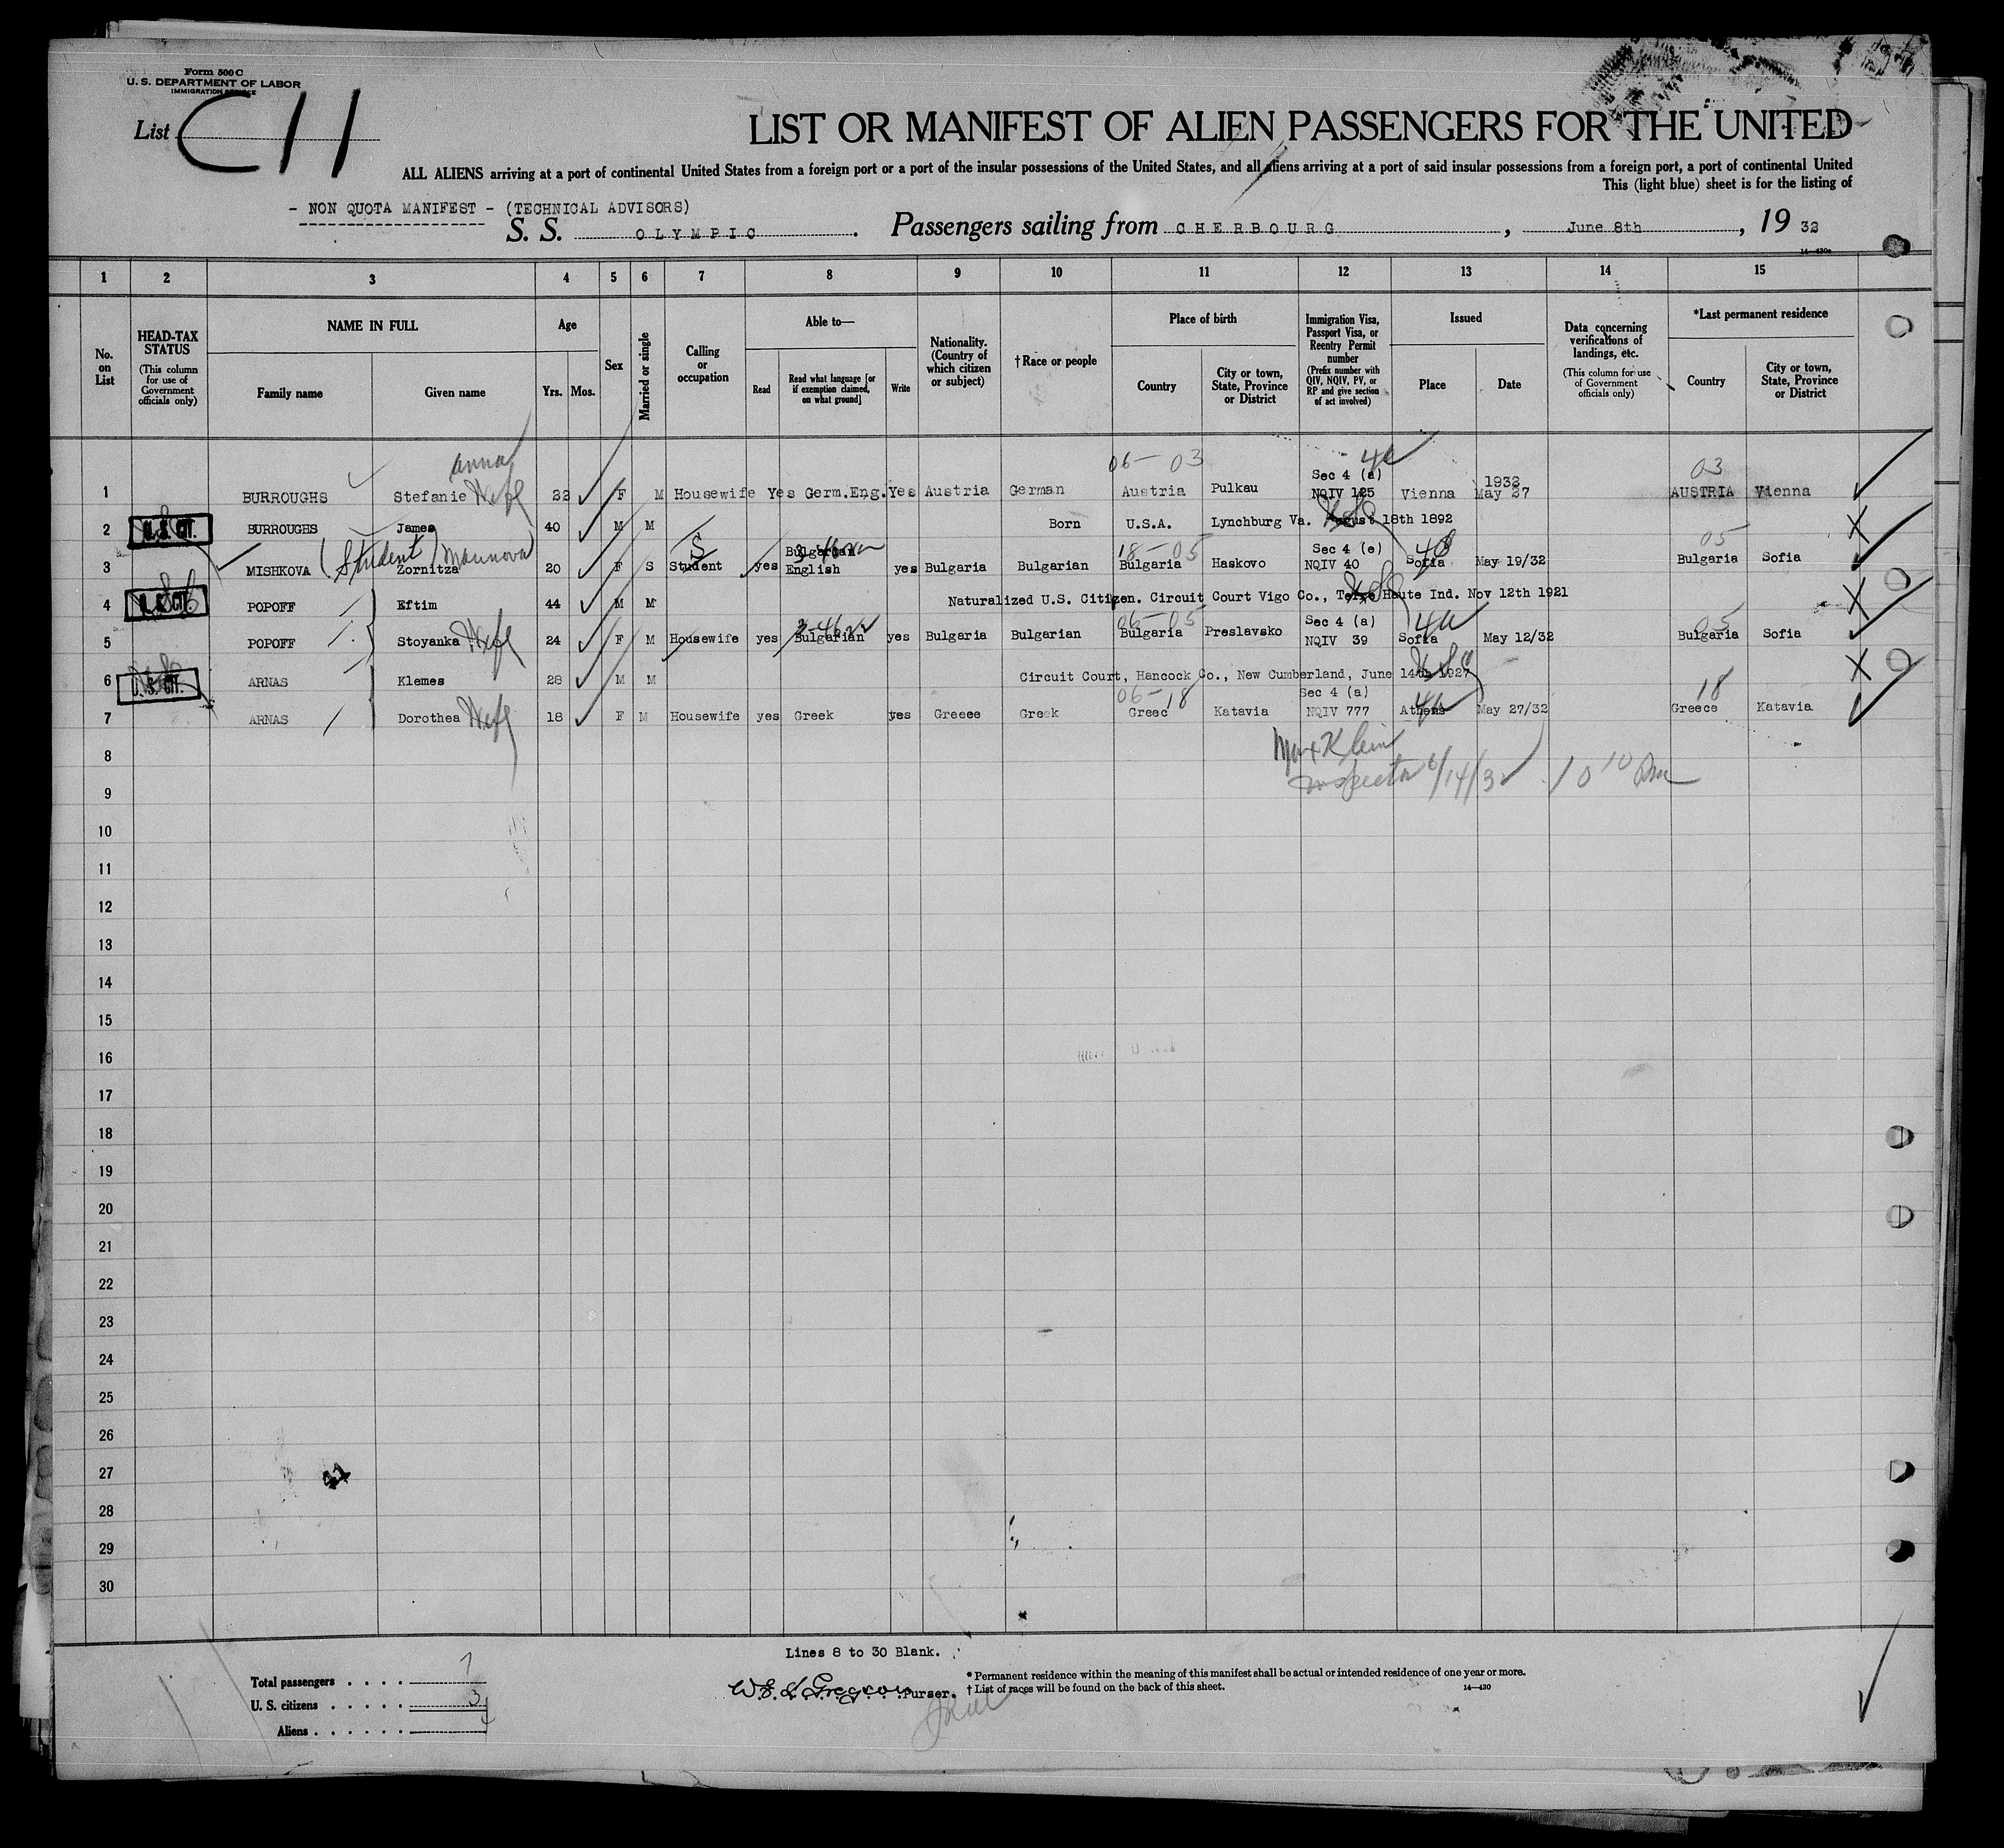 Form 500 C
U. S. DEPARTMENT OF LABOR
IMMIGRATION SERVICE
List C11
LIST OR MANIFEST OF ALIEN PASSENGERS FOR THE UNITED
ALL ALIENS arriving at a port of continental United States from a foreign port or a port of the insular possessions of the United States, and all aliens arriving at a port of said insular possessions from a foreign port, a port of continental United
This (light blue) sheet is for the listing of
- NON QUOTA MANIFEST - (TECHNICAL ADVISORS)
S. S. OLYMPIC. Passengers sailing from CHERBOURG, June 8th, 19 32
14—430c
1 2 3 4 5 6 7 8 9 10 11 12 13 14 15
No. on List
HEAD-TAX STATUS (This column for use of Government officials only)
NAME IN FULL
Family name Given name
Age
Yrs. Mos.
Sex
Married or single
Calling or occupation
Able to—
Read Read what language [or if exemption claimed, on what ground] Write
Nationality. (Country of which citizen or subject)
† Race or people
Place of birth
Country City or town, State, Province or District
Immigration Visa, Passport Visa, or Reentry Permit number (Prefix number with QIV, NQIV, PV, or RP and give section of act involved)
Issued
Place Date
Data concerning verifications of landings, etc. (This column for use of Government officials only)
*Last permanent residence
Country City or town, State, Province or District
anna 06-03 4a 03
Sec 4 (a) 1932
1 BURROUGHS Stefanie Wife 22 F M Housewife Yes Germ.Eng. Yes Austria German Austria Pulkau NQIV 125 Vienna May 27 AUSTRIA Vienna
2 U.S. CIT. BURROUGHS James 40 M M Born U.S.A. Lynchburg Va. August 18th 1892 X
(Student) S Bulgarian 18-05 Sec 4 (e) 05
3 MISHKOVA Zornitza 20 F S Student yes English yes Bulgaria Bulgarian Bulgaria Haskovo NQIV 40 Sofia May 19/32 Bulgaria Sofia
4 U.S. CIT. POPOFF Eftim 44 M M Naturalized U.S. Citizen. Circuit Court Vigo Co., Terre Haute Ind. Nov 12th 1921 X
06-05 Sec 4 (a) 4a 05
5 POPOFF Stoyanka Wife 24 F M Housewife yes Bulgarian yes Bulgaria Bulgarian Bulgaria Preslavsko NQIV 39 Sofia May 12/32 Bulgaria Sofia
6 U.S. CIT. ARNAS Klemes 28 M M Circuit Court, Hancock Co., New Cumberland, June 14th 1927 X
06-18 Sec 4 (a) 4a 18
7 ARNAS Dorothea Wife 18 F M Housewife yes Greek yes Greece Greek Greec Katavia NQIV 777 Athens May 27/32 Greece Katavia
8 Max Klein
Inspector 6/14/32 10 10 Pm
9
10
11
12
13
14
15
16
17
18
19
20
21
22
23
24
25
26
27
28
29
30
Lines 8 to 30 Blank.
Total passengers 7
U. S. citizens 3
Aliens 4
Purser.
* Permanent residence within the meaning of this manifest shall be actual or intended residence of one year or more.
† List of races will be found on the back of this sheet.
14—430